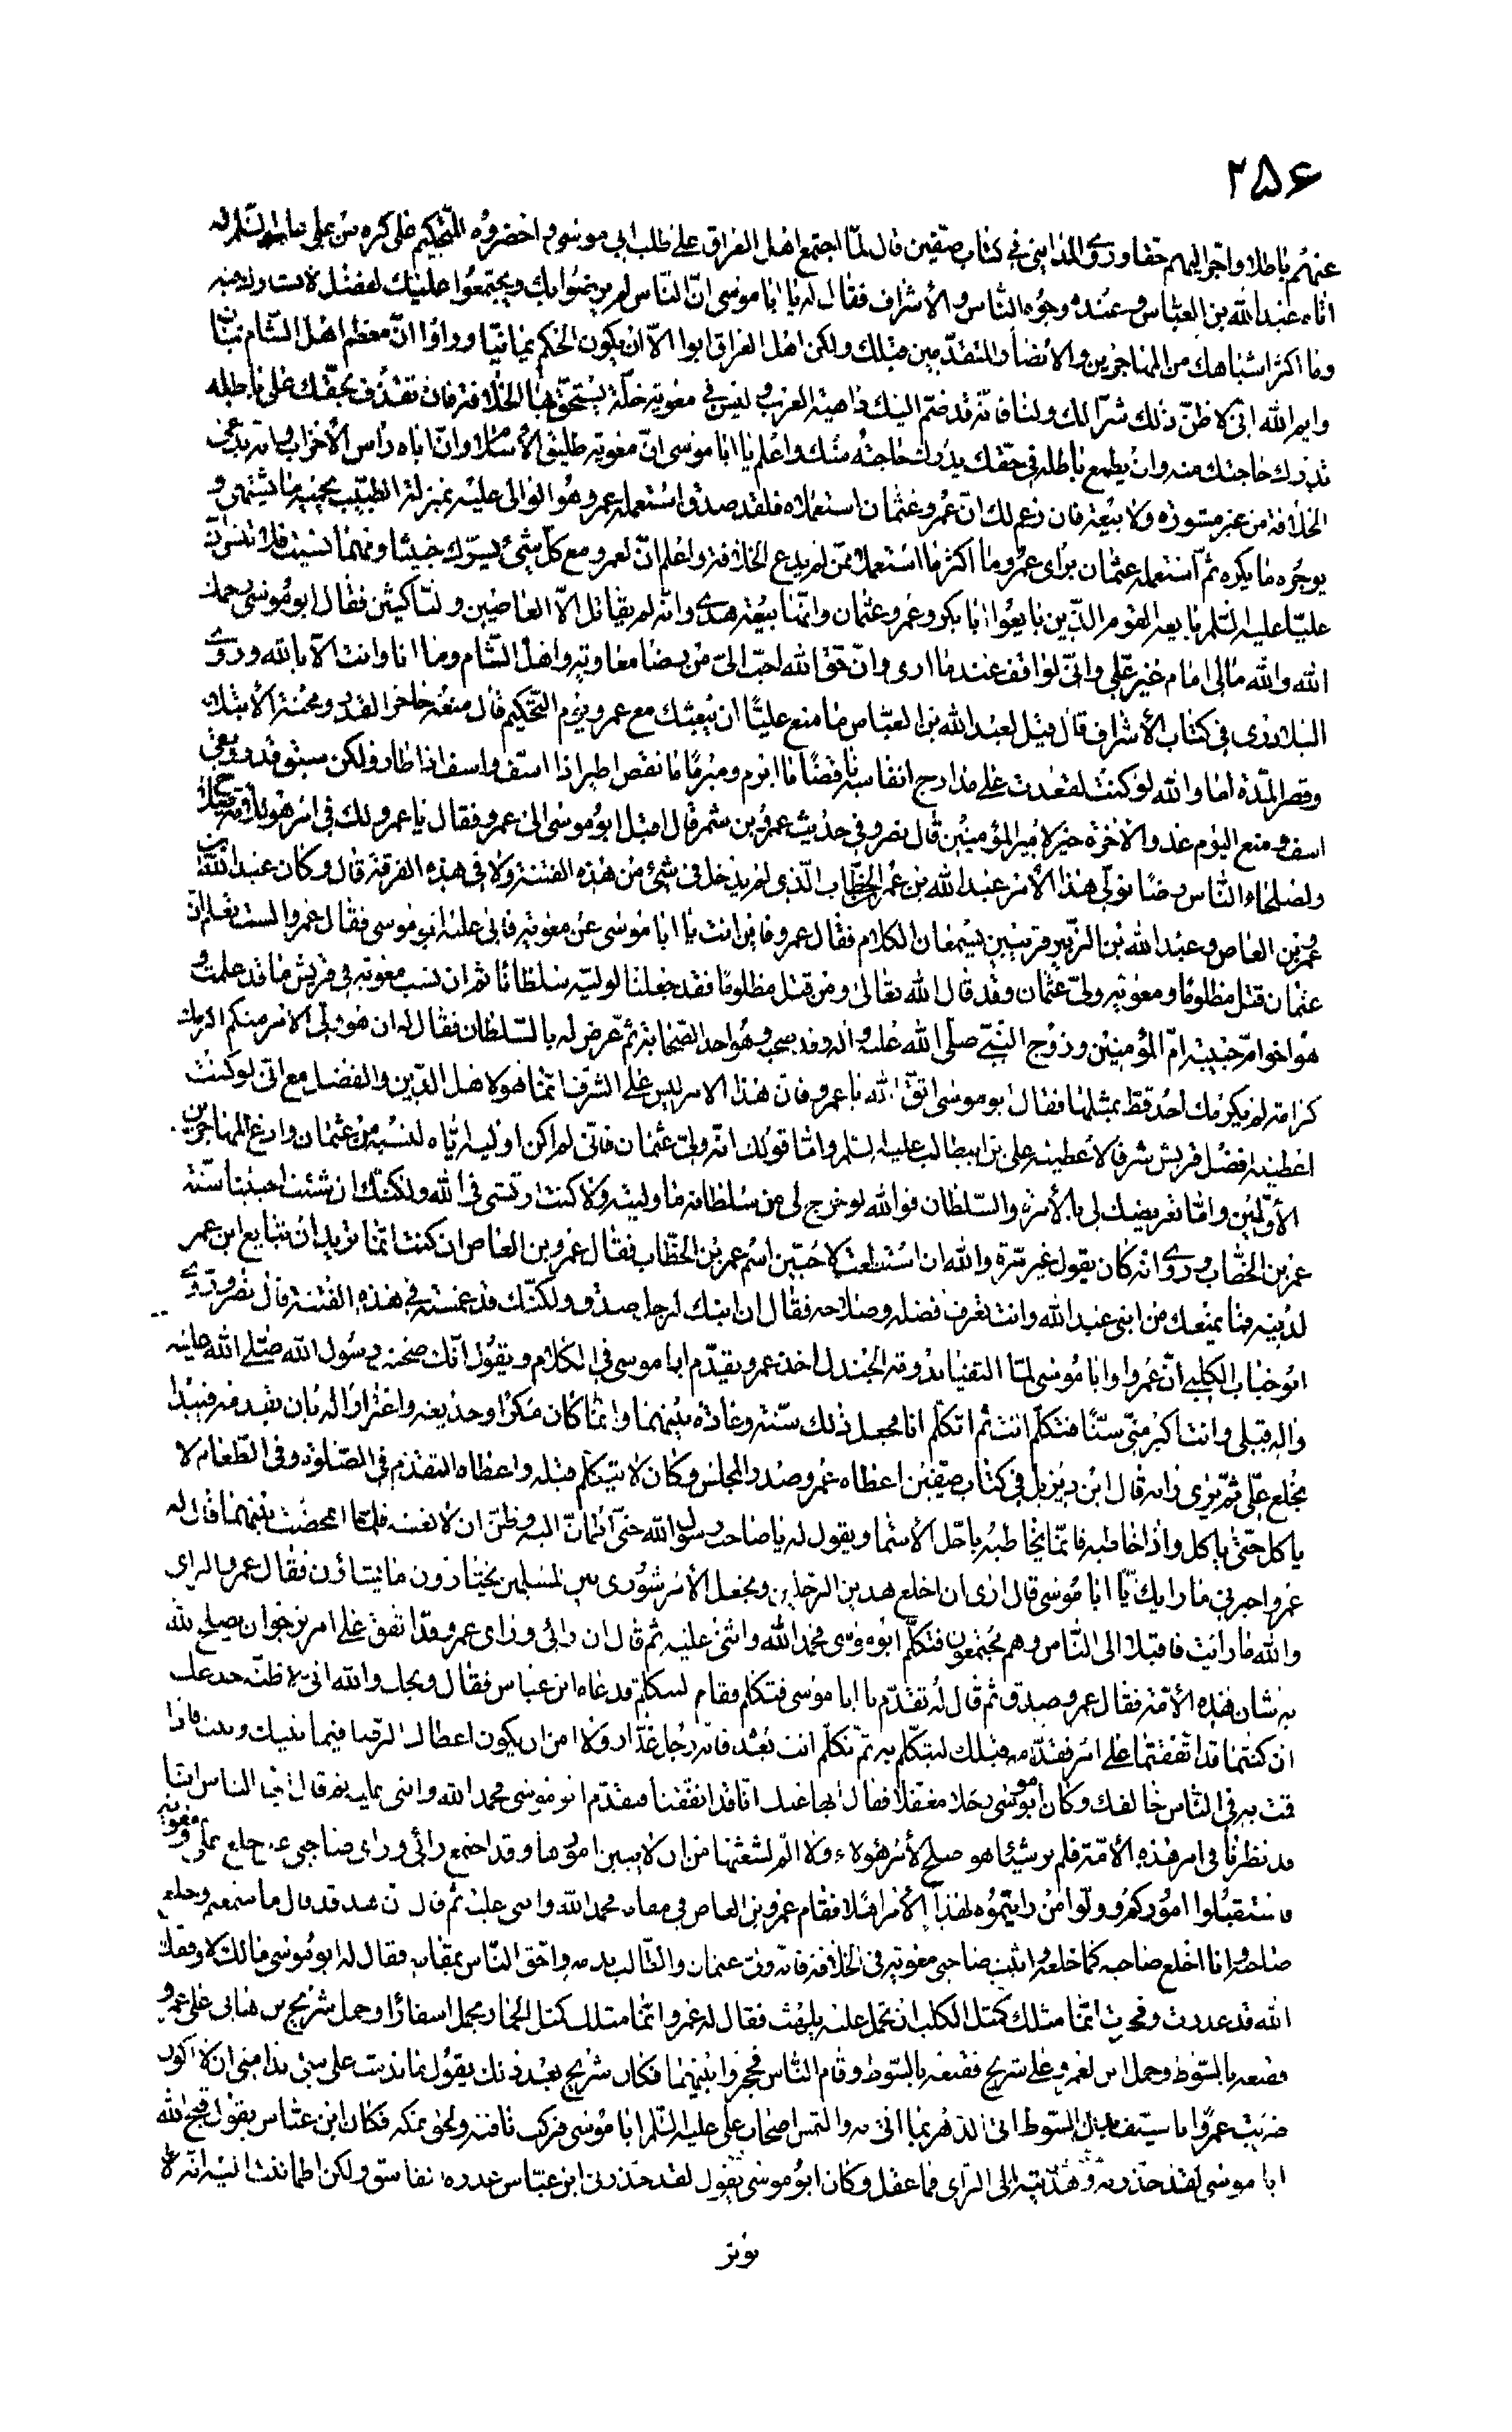 ۲۵۶
عنهم باطلا واتحوا اليهم حقا وروى المدايني في كتاب صفين قال لما اجتمع اهل العراق على طلب ابي موسى واحضروه للتحكيم على كره من علي عليه السلم
اتاه عبد الله بن العباس وعنده وجوه الناس والأشراف فقال له يا ابا موسى ان الناس لم يرضوا بك ويجتمعوا عليك لفضل لا تشارك فيه
وما اكثر اشباهك من المهاجرين والأنصار والمتقدمين قبلك ولكن اهل العراق ابوا الا ان يكون الحكم يمانيا وراوا ان معظم اهل الشام يمان
وايم الله اني لاظن ذلك شرا لك ولنا فانه قد ضم اليك داهية العرب وليس في معوية خلة يستحق بها الخلافة فان تقذف بحقك على باطله
تدرك حاجتك منه وان يطمع باطله في حقك يدرك حاجته منك واعلم يا ابا موسى ان معوية طليق الأسلام وان اباه راس الأحزاب وانه يدعى
الخلافة من غير مشورة ولا بيعة فان زعم لك ان عمر وعثمان استعملاه فلقد صدق استعمله عمر وهو الوالى عليه بمنزلة الطبيب يحميه ما يشتهى و
يوجره ما يكره ثم استعمله عثمان براى عمر وما اكثر ما استعملا ممن لم يدع الخلافة واعلم ان لعمرو مع كل شئ يسرك خبيئا ومهما نسيت فلا تنس ان
عليا عليه السلم بايعه القوم الذين بايعوا ابا بكر وعمر وعثمان وانها بيعة هدى وانه لم يقاتل الا العاصين والناكثين فقال ابو موسى رحمك
الله والله مالى امام غير علي واني لواقف عند ما ارى وان حق الله احب الى من رضا معاوية واهل الشام وما انا وانت الا بالله وروى
البلاذرى في كتاب الأشراف قال قيل لعبد الله بن العباس ما منع عليا ان يبعثك مع عمرو يوم التحكيم قال منعه حاجز القدر ومحنة الأبتلاء
وقصر المدة اما والله لو كنت لقعدت على مدارج انفاسه ناقضا ما ابرم ومبرما ما نقض اطير اذا اسف واسف اذا طار ولكن سبق قدر وبقى
اسف ومع اليوم غد والآخرة خير لأمير المؤمنين قال نصر وفي حديث عمرو بن شمر قال اقبل ابو موسى الى عمرو فقال يا عمرو هل لك في امر هو للأمة صلاح
ولصلحاء الناس رضا نولي هذا الأمر عبد الله بن عمر بن الخطاب الذي لم يدخل في شئ من هذه الفتنة ولا في هذه الفرقة قال وكان عبد الله بن
عمرو بن العاص وعبد الله بن الزبير قريبين يسمعان الكلام فقال عمرو فاين انت يا ابا موسى عن معوية فابى عليه ابو موسى فقال عمرو الست تعلم ان
عثمان قتل مظلوما ومعوية ولى عثمان وقد قال الله تعالى ومن قتل مظلوما فقد جعلنا لوليه سلطانا ثم ان نسب معوية في قريش ما قد علمت و
هو اخو ام حبيبة ام المؤمنين وزوج النبي صلى الله عليه واله وقد صحب وهو احد الصحابة ثم عرض له بالسلطان فقال له ان هو ولى الأمر منكم اكرمك
كرامة لم يكرمك احد قط بمثلها فقال ابو موسى اتق الله يا عمرو فان هذا الامر ليس على الشرف انما هو لاهل الدين والفضل مع انى لو كنت
اعطيه افضل قريش شرفا لأعطيته على بن ابيطالب عليه السلم واما قولك انه ولى عثمان فانى لم اكن اوليه اياه لنسبه من عثمان وادع المهاجرين
الأولين واما تعريضك لى بالأمرة والسلطان فوالله لو خرج لى من سلطانه ما وليته ولا كنت ارتشى في الله ولكنك ان شئت احيينا سنة
عمر بن الخطاب وروى انه كان يقول غير مرة والله ان استطعت لاحيين اسم عمر بن الخطاب فقال عمرو بن العاص ان كنت انما تريد ان تبايع ابن عمر
لدينه فما يمنعك من ابنى عبد الله وانت تعرف فضله وصلاحه فقال ان ابنك لرجل صدق ولكنك قد غمسته في هذه الفتنة قال نصر وروى
ابو خباب الكلبي ان عمروا وابا موسى لما التقيا بدومة الجندل اخذ عمرو يقدم ابا موسى في الكلام ويقول انك صحبت رسول الله صلى الله عليه
واله قبلى وانت اكبر منى سنا فتكلم انت ثم اتكلم انا فجعل ذلك سنة وعادة بينهما وانما كان مكرا وخديعة واغترارا له بان يقدمه فيبدأ
بخلع على ثم يرى رايه قال ابن ديزيل في كتاب صفين اعطاه عمرو صدر المجلس وكان لا يتكلم قبله واعطاه التقدم في الصلوة وفى الطعام لا
ياكل حتى ياكل واذا خاطبه فانما يخاطبه باجل الأسماء ويقول له يا صاحب رسول الله حتى اطمأن اليه وظن ان لا يغشه فلما انمخضت بينهما قال له
عمرو اخبرنى ما رايك يا ابا موسى قال ارى ان اخلع هذين الرجلين ونجعل الأمر شورى بين المسلمين يختارون ما يشاؤن فقال عمرو الراى
والله ما رايت فاقبلا الى الناس وهم مجتمعون فتكلم ابو موسى فحمد الله واثنى عليه ثم قال ان رائى وراى عمرو قد اتفق على امر نرجو ان يصلح الله
به شان هذه الأمة فقال عمرو صدق ثم قال له تقدم يا ابا موسى فتكلم فقام ليتكلم فدعاه ابن عباس فقال ويحك والله انى لاظنه خدعك
ان كنتما قد اتفقتما على امر فقدمه قبلك ليتكلم به ثم تكلم انت بعده فانه رجل غدار ولا امن ان يكون اعطاك الرضا فيما بينك وبينه فاذا
قمت به في الناس خالفك وكان ابو موسى رجلا مغفلا فقال ايها عنك انا قد اتفقنا فتقدم ابو موسى فحمد الله واثنى عليه ثم قال ايها الناس انا
قد نظرنا في امر هذه الأمة فلم نر شيئا هو اصلح لأمر هؤلاء ولا الم لشعثها من ان لا يبين امورها وقد اجتمع رائى وراى صاحبى على خلع على ومعوية
فاستقبلوا اموركم وولوا من رايتموه لهذا الأمر اهلا فقام عمرو بن العاص في مقامه فحمد الله واثنى عليه ثم قال ان هذا قد قال ما سمعتم وخلع
صاحبه وانا اخلع صاحبه كما خلعه واثبت صاحبى معوية في الخلافة فانه ولى عثمان والطالب بدمه واحق الناس بمقامه فقال له ابو موسى مالك لا وفقك
الله قد غدرت وفجرت انما مثلك كمثل الكلب ان تحمل عليه يلهث فقال له عمرو انما مثلك كمثل الحمار يحمل اسفارا وحمل شريح بن هانى على عمرو
فقنعه بالسوط وحمل ابن لعمرو على شريح فقنعه بالسوط وقام الناس فحجزوا بينهما فكان شريح بعد ذلك يقول ما ندمت على شئ ندامتى ان لا اكون
ضربت عمروا بالسيف بدل السوط اتى الدهر بما اتى به والتمس اصحاب على عليه السلم ابا موسى فركب ناقته ولحق بمكة فكان ابن عباس يقول قبح الله
ابا موسى لقد حذرته وهديته الى الراى فما عقل وكان ابو موسى يقول لقد حذرنى ابن عباس غدرة الفاسق ولكن اطماننت اليه انه لا
يؤثر